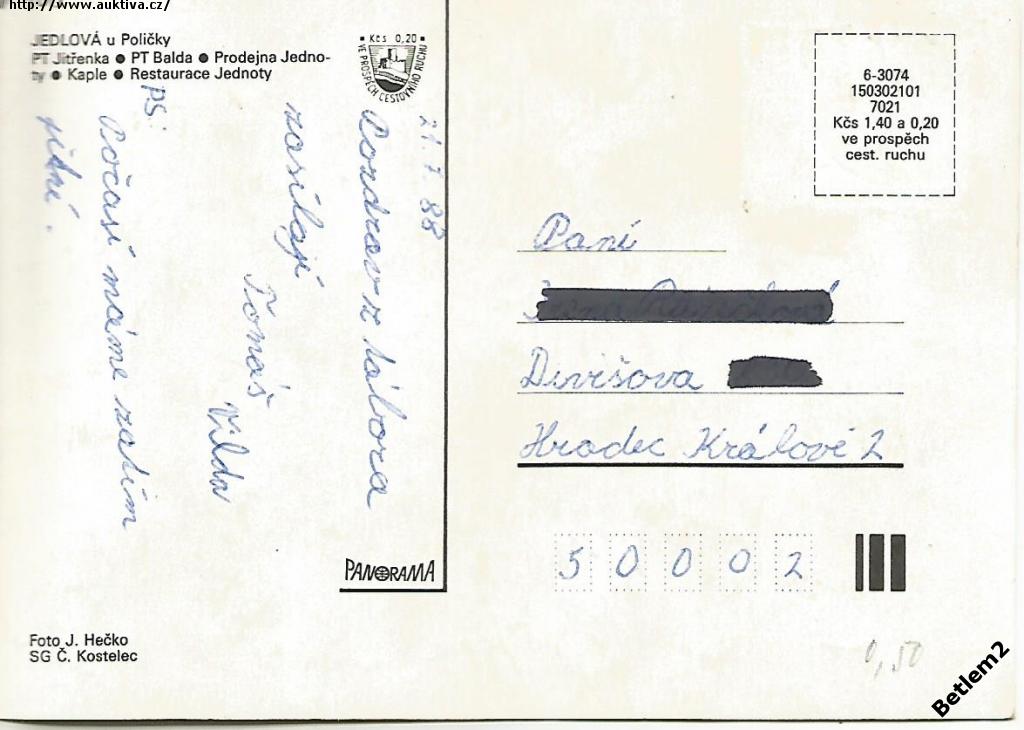 http://www.auktiva.cz/
JEDLOVÁ u Poličky
PT Jitřenka ● PT Balda ● Prodejna Jedno-
ty ● Kaple ● Restaurace Jednoty
Kčs 0,20
VE PROSPĚCH CESTOVNÍHO RUCHU
21. 7. 88
Pozdrav z tábora
zasílají
Tomáš
Vilda
PS:
Počasí máme zatím
PANORAMA
Foto J. Hečko
SG Č. Kostelec
6-3074
150302101
7021
Kčs 1,40 a 0,20
ve prospěch
cest. ruchu
Paní
Divišova
Hradec Králové 2
5 0 0 0 2
0,50
Betlem2